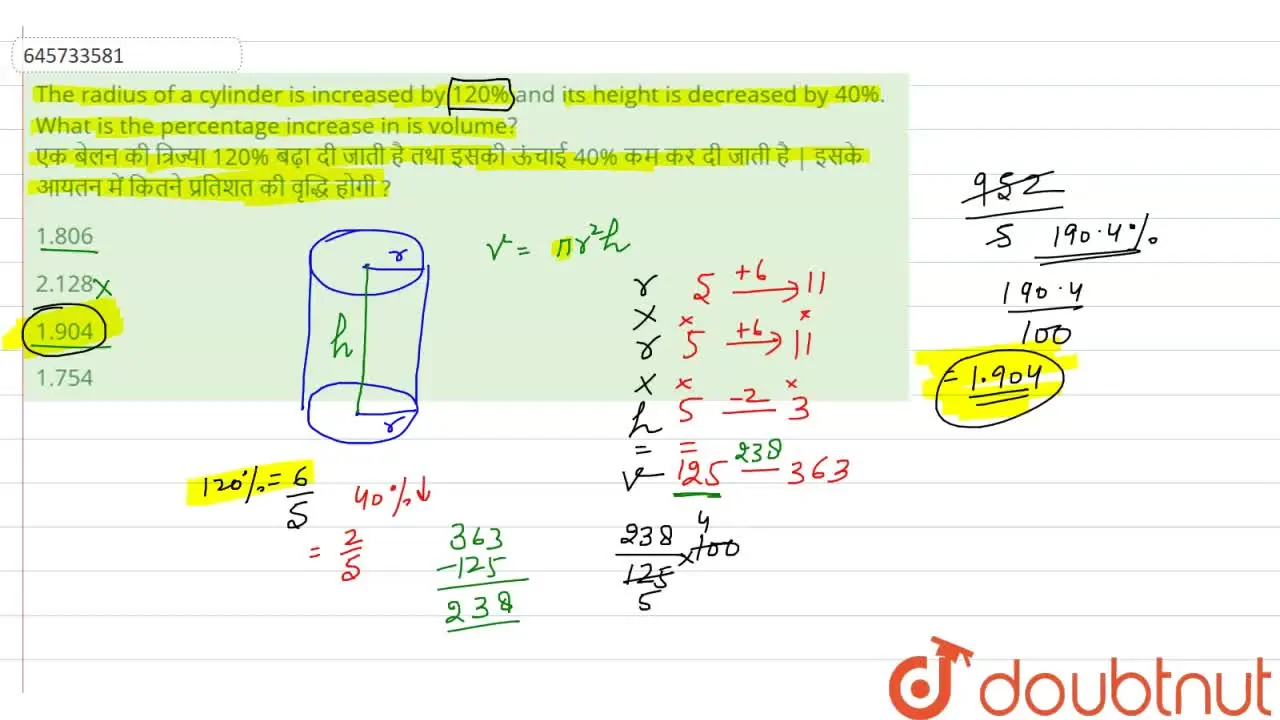 645733581
The radius of a cylinder is increased by 120% and its height is decreased by 40%.
What is the percentage increase in is volume?
एक बेलन की त्रिज्या 120% बढ़ा दी जाती है तथा इसकी ऊंचाई 40% कम कर दी जाती है | इसके
आयतन में कितने प्रतिशत की वृद्धि होगी ?
1.806
2.128 x
1.904
1.754
r
h
r
v = πr²h
r 5 +6 → 11
x x x
r 5 +6 → 11
x x x
h 5 -2 3
= =
v 125 238 363
120% = 6/5
40% ↓
= 2/5
363
-125
238
238/125 x 100
4
5
952/5
190.4%
190.4/100
= 1.904
doubtnut